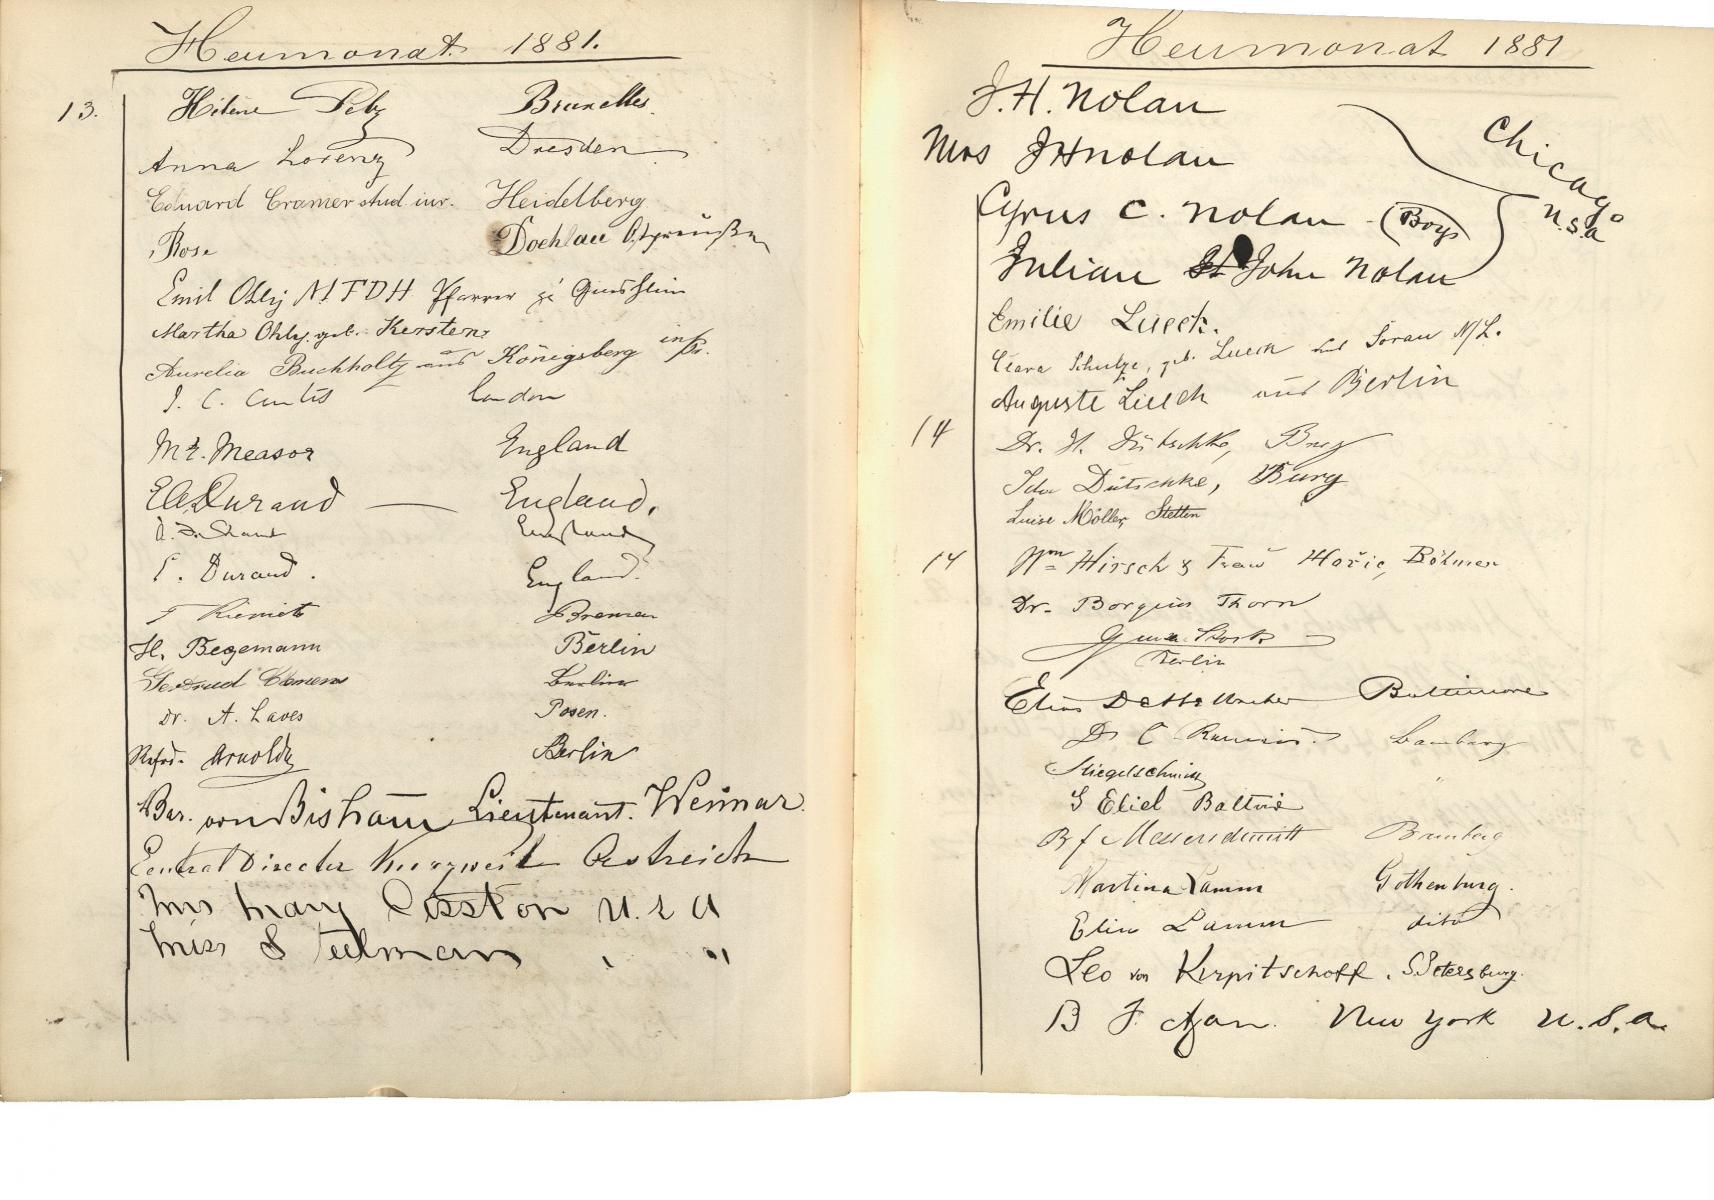 Heumonat. 1881.
13. Hélène Bruxelles.
Anna Lorenz Dresden
Eduard Cramer stud iur. Heidelberg
Rose Doehlau Ostpreußen
Emil Ohly Pfarrer
Martha Ohly. geb. Kersten
Aurelia Buchholtz aus Königsberg in Pr.
J. C. Curtis London
Mr. Measor England
E. A. Durand — England.
England
E. Durand. England.
Bremen
H. Begemann Berlin
Gertrud Clemens Berlin
Dr. A. Laves Posen.
Refrd. Arnoldy Berlin
Bar. von Lieutenant. Weimar.
Central Director Kurzweil Oestreich
Mrs Mary Cisston U. S A
Miss S Teelman " "
Heumonat 1881
J. H. Nolan
Mrs J H Nolan
Chicago
U.S.A
Cyrus C. Nolan (Boys)
Julian St John Nolan
Emilie Lueck.
Clara Schulze, geb. Lueck aus Sorau N/L.
Auguste Lueck aus Berlin
14 Dr. H. Dütschke, Burg
Ida Dütschke, Burg
Luise Möller, Stettin
14 Wm Hirsch & Frau Hořic, Böhmen
Dr. Borgius Thorn
Berlin
Baltimore
Dr C Bamberg
Stiegelschmitt "
S Eliel
B f Messerschmitt Bamberg
Martina Lamm Gothenburg.
Elin Lamm dito
Leo von Kirpitschoff. S. Petersburg.
B F New York U.S.A.